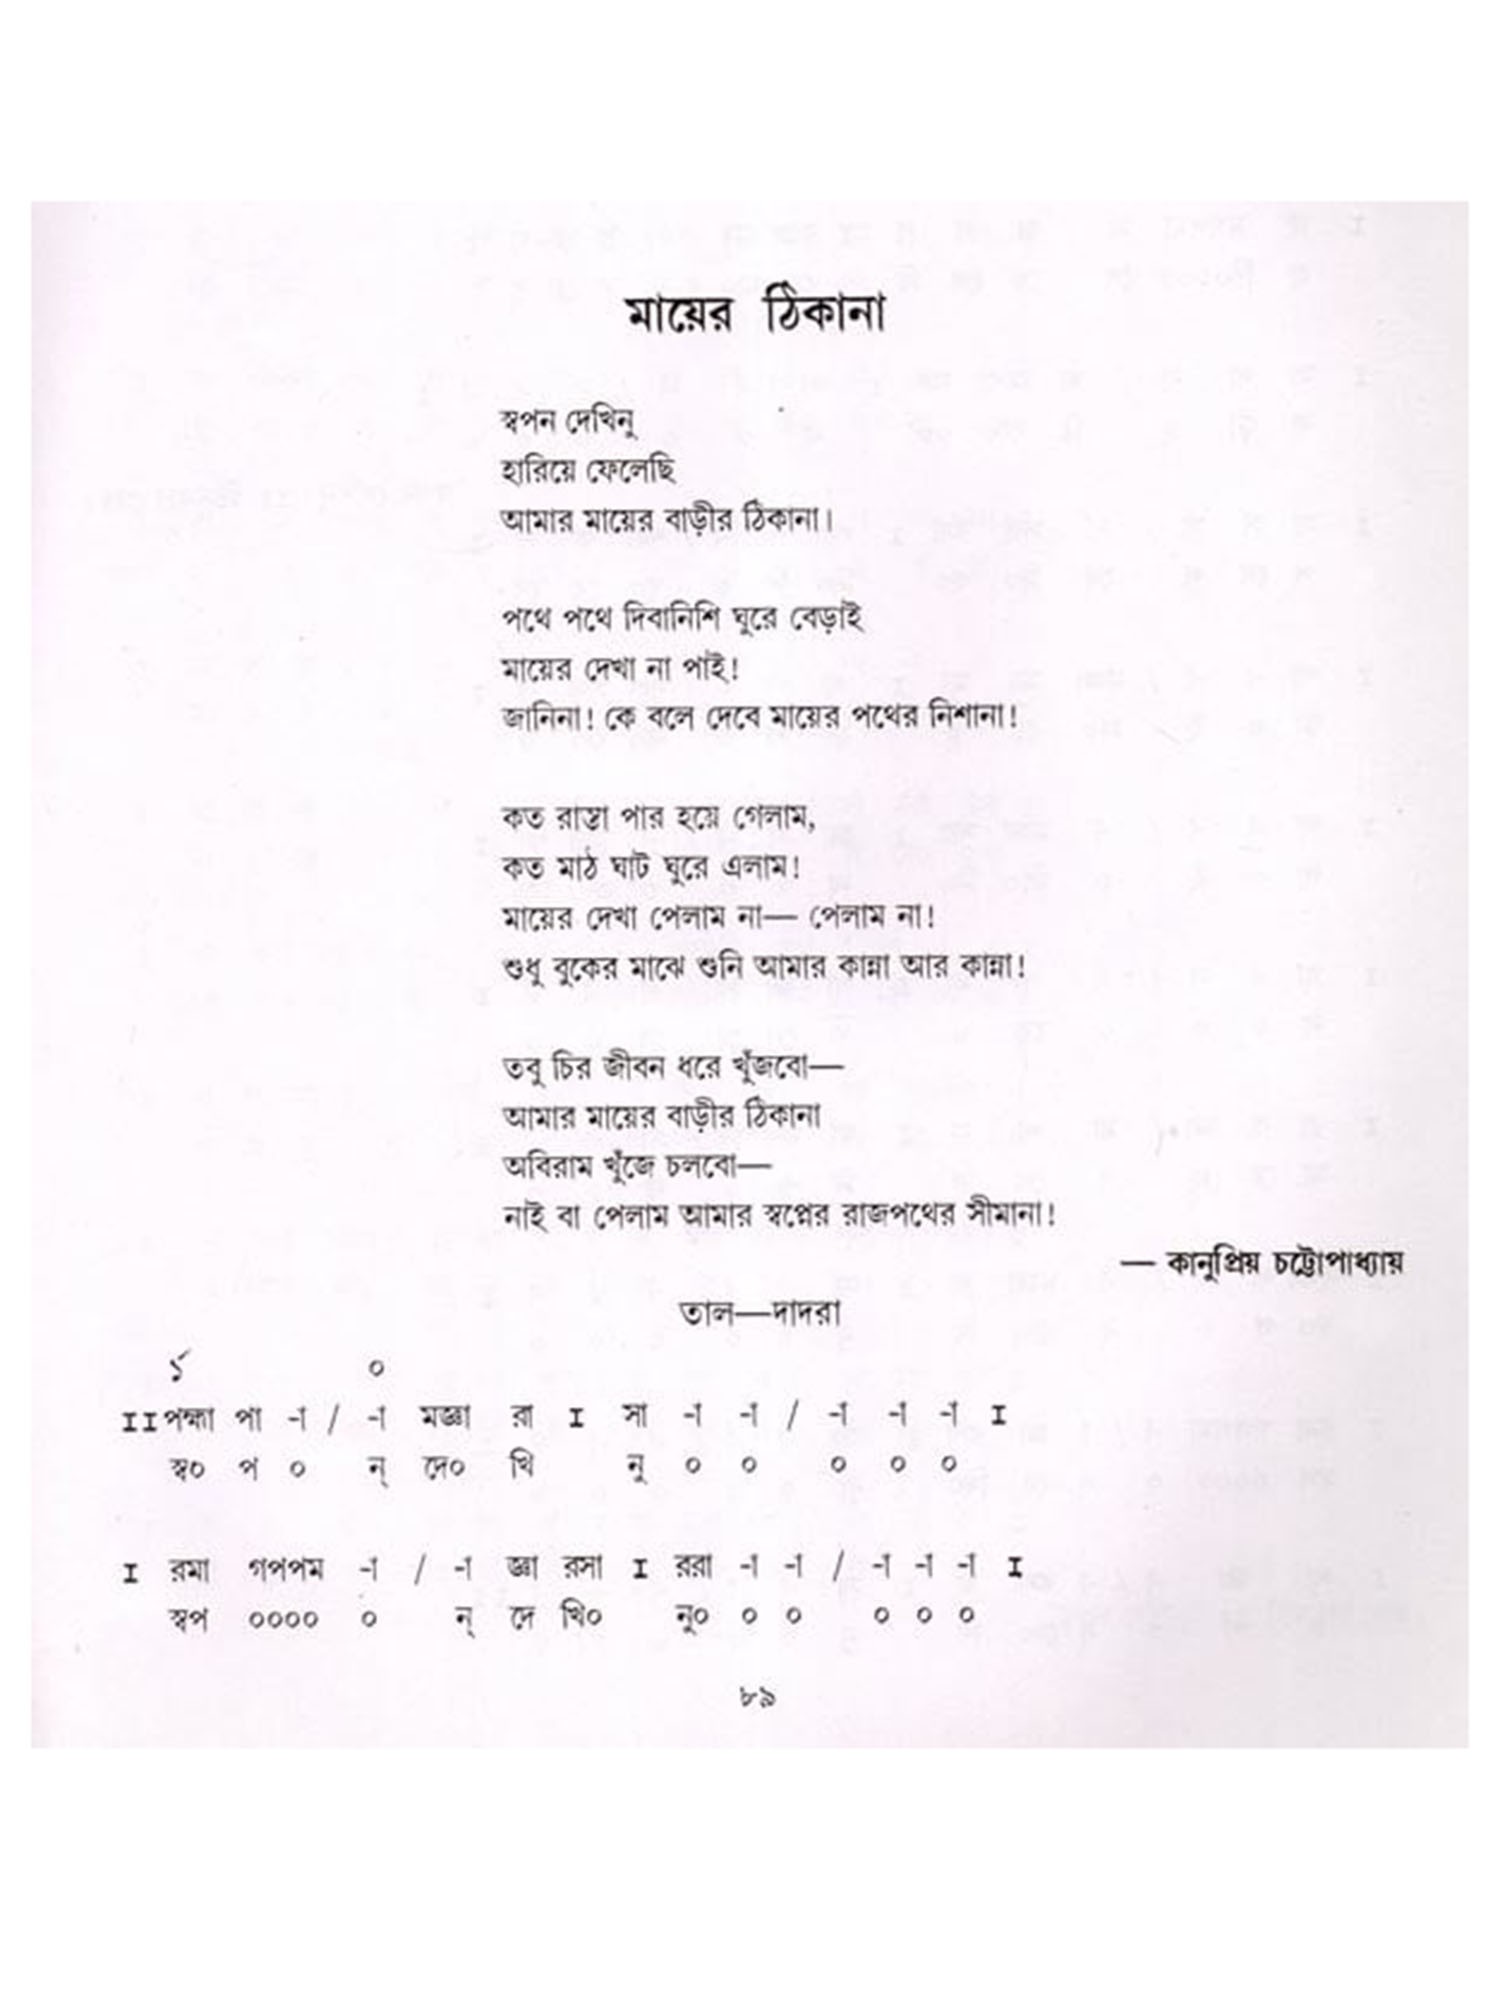 মায়ের ঠিকানা
স্বপন দেখিনু
হারিয়ে ফেলেছি
আমার মায়ের বাড়ীর ঠিকানা।
পথে পথে দিবানিশি ঘুরে বেড়াই
মায়ের দেখা না পাই!
জানিনা! কে বলে দেবে মায়ের পথের নিশানা!
কত রাস্তা পার হয়ে গেলাম,
কত মাঠ ঘাট ঘুরে এলাম!
মায়ের দেখা পেলাম না— পেলাম না!
শুধু বুকের মাঝে শুনি আমার কান্না আর কান্না!
তবু চির জীবন ধরে খুঁজবো—
আমার মায়ের বাড়ীর ঠিকানা
অবিরাম খুঁজে চলবো—
নাই বা পেলাম আমার স্বপ্নের রাজপথের সীমানা!
— কানুপ্রিয় চট্টোপাধ্যায়
তাল—দাদরা
১´ ০
II পহ্মা পা -া / -া মজ্ঞা রা I সা -া -া / -া -া -া I
স্ব০ প ০ ন্ দে০ খি নু ০ ০ ০ ০ ০
I রমা গপপম -া / -া জ্ঞা রসা I ররা -া -া / -া -া -া I
স্বপ ০০০০ ০ ন্ দে খি০ নু০ ০ ০ ০ ০ ০
৮৯